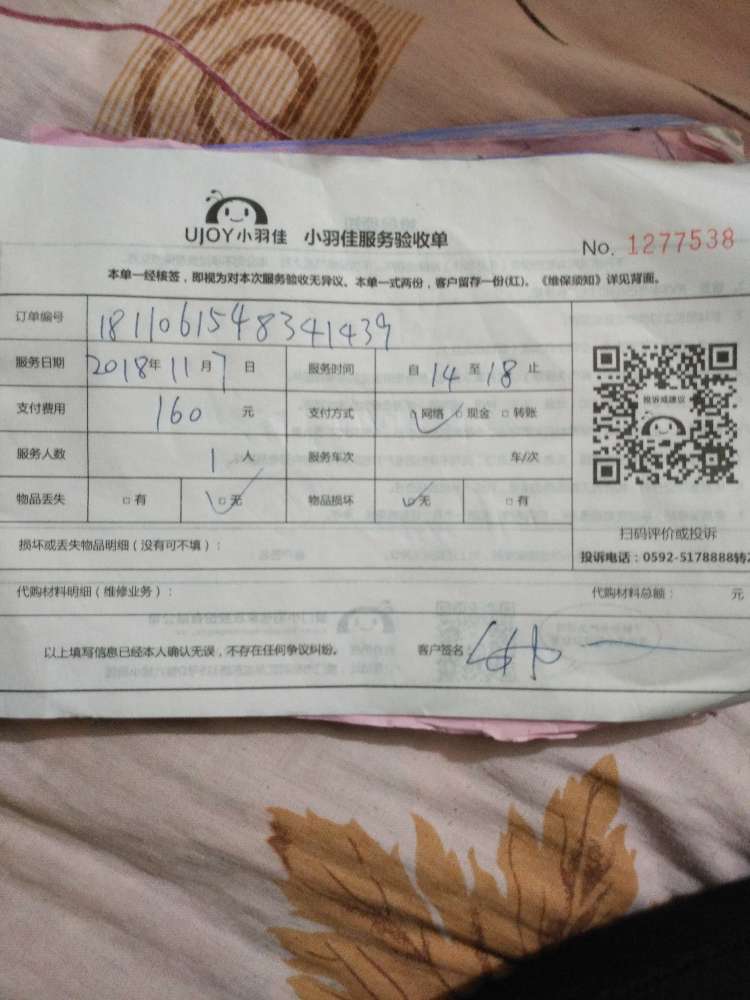 UJOY小羽佳 小羽佳服务验收单
No. 1277538
本单一经核签，即视为对本次服务验收无异议、本单一式两份，客户留存一份(红)。《维保须知》详见背面。
订单编号 1811061548341439
服务日期 2018年 11月 7日 服务时间 自 14 至 18 止
支付费用 160 元 支付方式 网络 现金 转账
服务人数 1 人 服务车次 车/次
物品丢失 有 无 物品损坏 无 有
投诉或建议
扫码评价或投诉
投诉电话：0592-5178888转2
损坏或丢失物品明细（没有可不填）：
代购材料明细（维修业务）： 代购材料总额： 元
以上填写信息已经本人确认无误，不存在任何争议纠纷。 客户签名